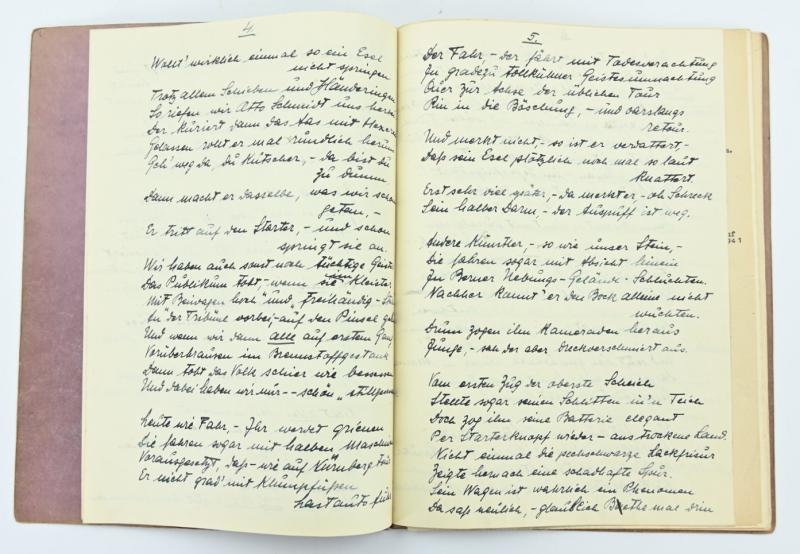 4.
Wollt' wirklich einmal so ein Esel
nicht springen
Trotz allem Schieben und Händeringen
So riefen wir Otto Schmidt uns
Der kuriert dann das Aas mit
Gelassen rollt er mal rundlich herum
Geh' weg da, Du Kutscher, - da bist Du
zu dumm
Dann macht er dasselbe, was wir schon
getan, -
Er tritt auf den Starter, - und schon
springt sie an.
Wir haben auch sonst noch tüchtige
Das Publikum tobt, - wenn im Kleister
Mit Beiwagen hoch" und "freihändig -
zu" der Tribüne vorbei, - auf den Pinsel
Und wenn wir dann alle auf ersten Gang
Vorüberbrausen im Brennstoffgestank
Dann tobt das Volk schier wie besessen
Und dabei haben wir nur - - schön "
Heute wie Fahr, - Ihr werdet grienen
Die fahren sogar mit halben
Vorausgesetzt, daß - wie auf Nürnberg
Er nicht grad' mit Klumpfüßen
Lastauto
5.
Der Fahr, - der fährt mit Todesverachtung
In gradezu tollkühner Geistesumnachtung
Quer zur Achse der üblichen Tour
Rin in die Böschung, - und varslangs
retour.
Und merkt nicht, - so ist er verdattert, -
Daß sein Esel plötzlich noch mal so laut
knattert.
Erst sehr viel später, - da merkt er, - oh Schreck
Sein halber Darm, - der Auspuff ist weg.
Andere Künstler, - so wie unser Stein, -
Die fahren sogar mit Absicht hinein
In Berner Uebungs-Gelände-Schluchten.
Nachher kannt' er den Bock alleine nicht
wuchten.
Drum zogen ihn Kameraden heraus
Junge, - sah der aber dreckverschmiert aus.
Vom ersten Zug der oberste Scheich
Stellte sogar seinen Schlitten in'n Teich
Doch zog ihn seine Batterie elegant
Per Starterknopf wieder - ans trockene Land.
Nicht einmal die pechschwarze Lackfrisur
Zeigte hernach eine schadhafte Spur.
Sein Wagen ist wahrlich ein Phenomen
Da saß neulich, - glaub' ich Goethe mal drin